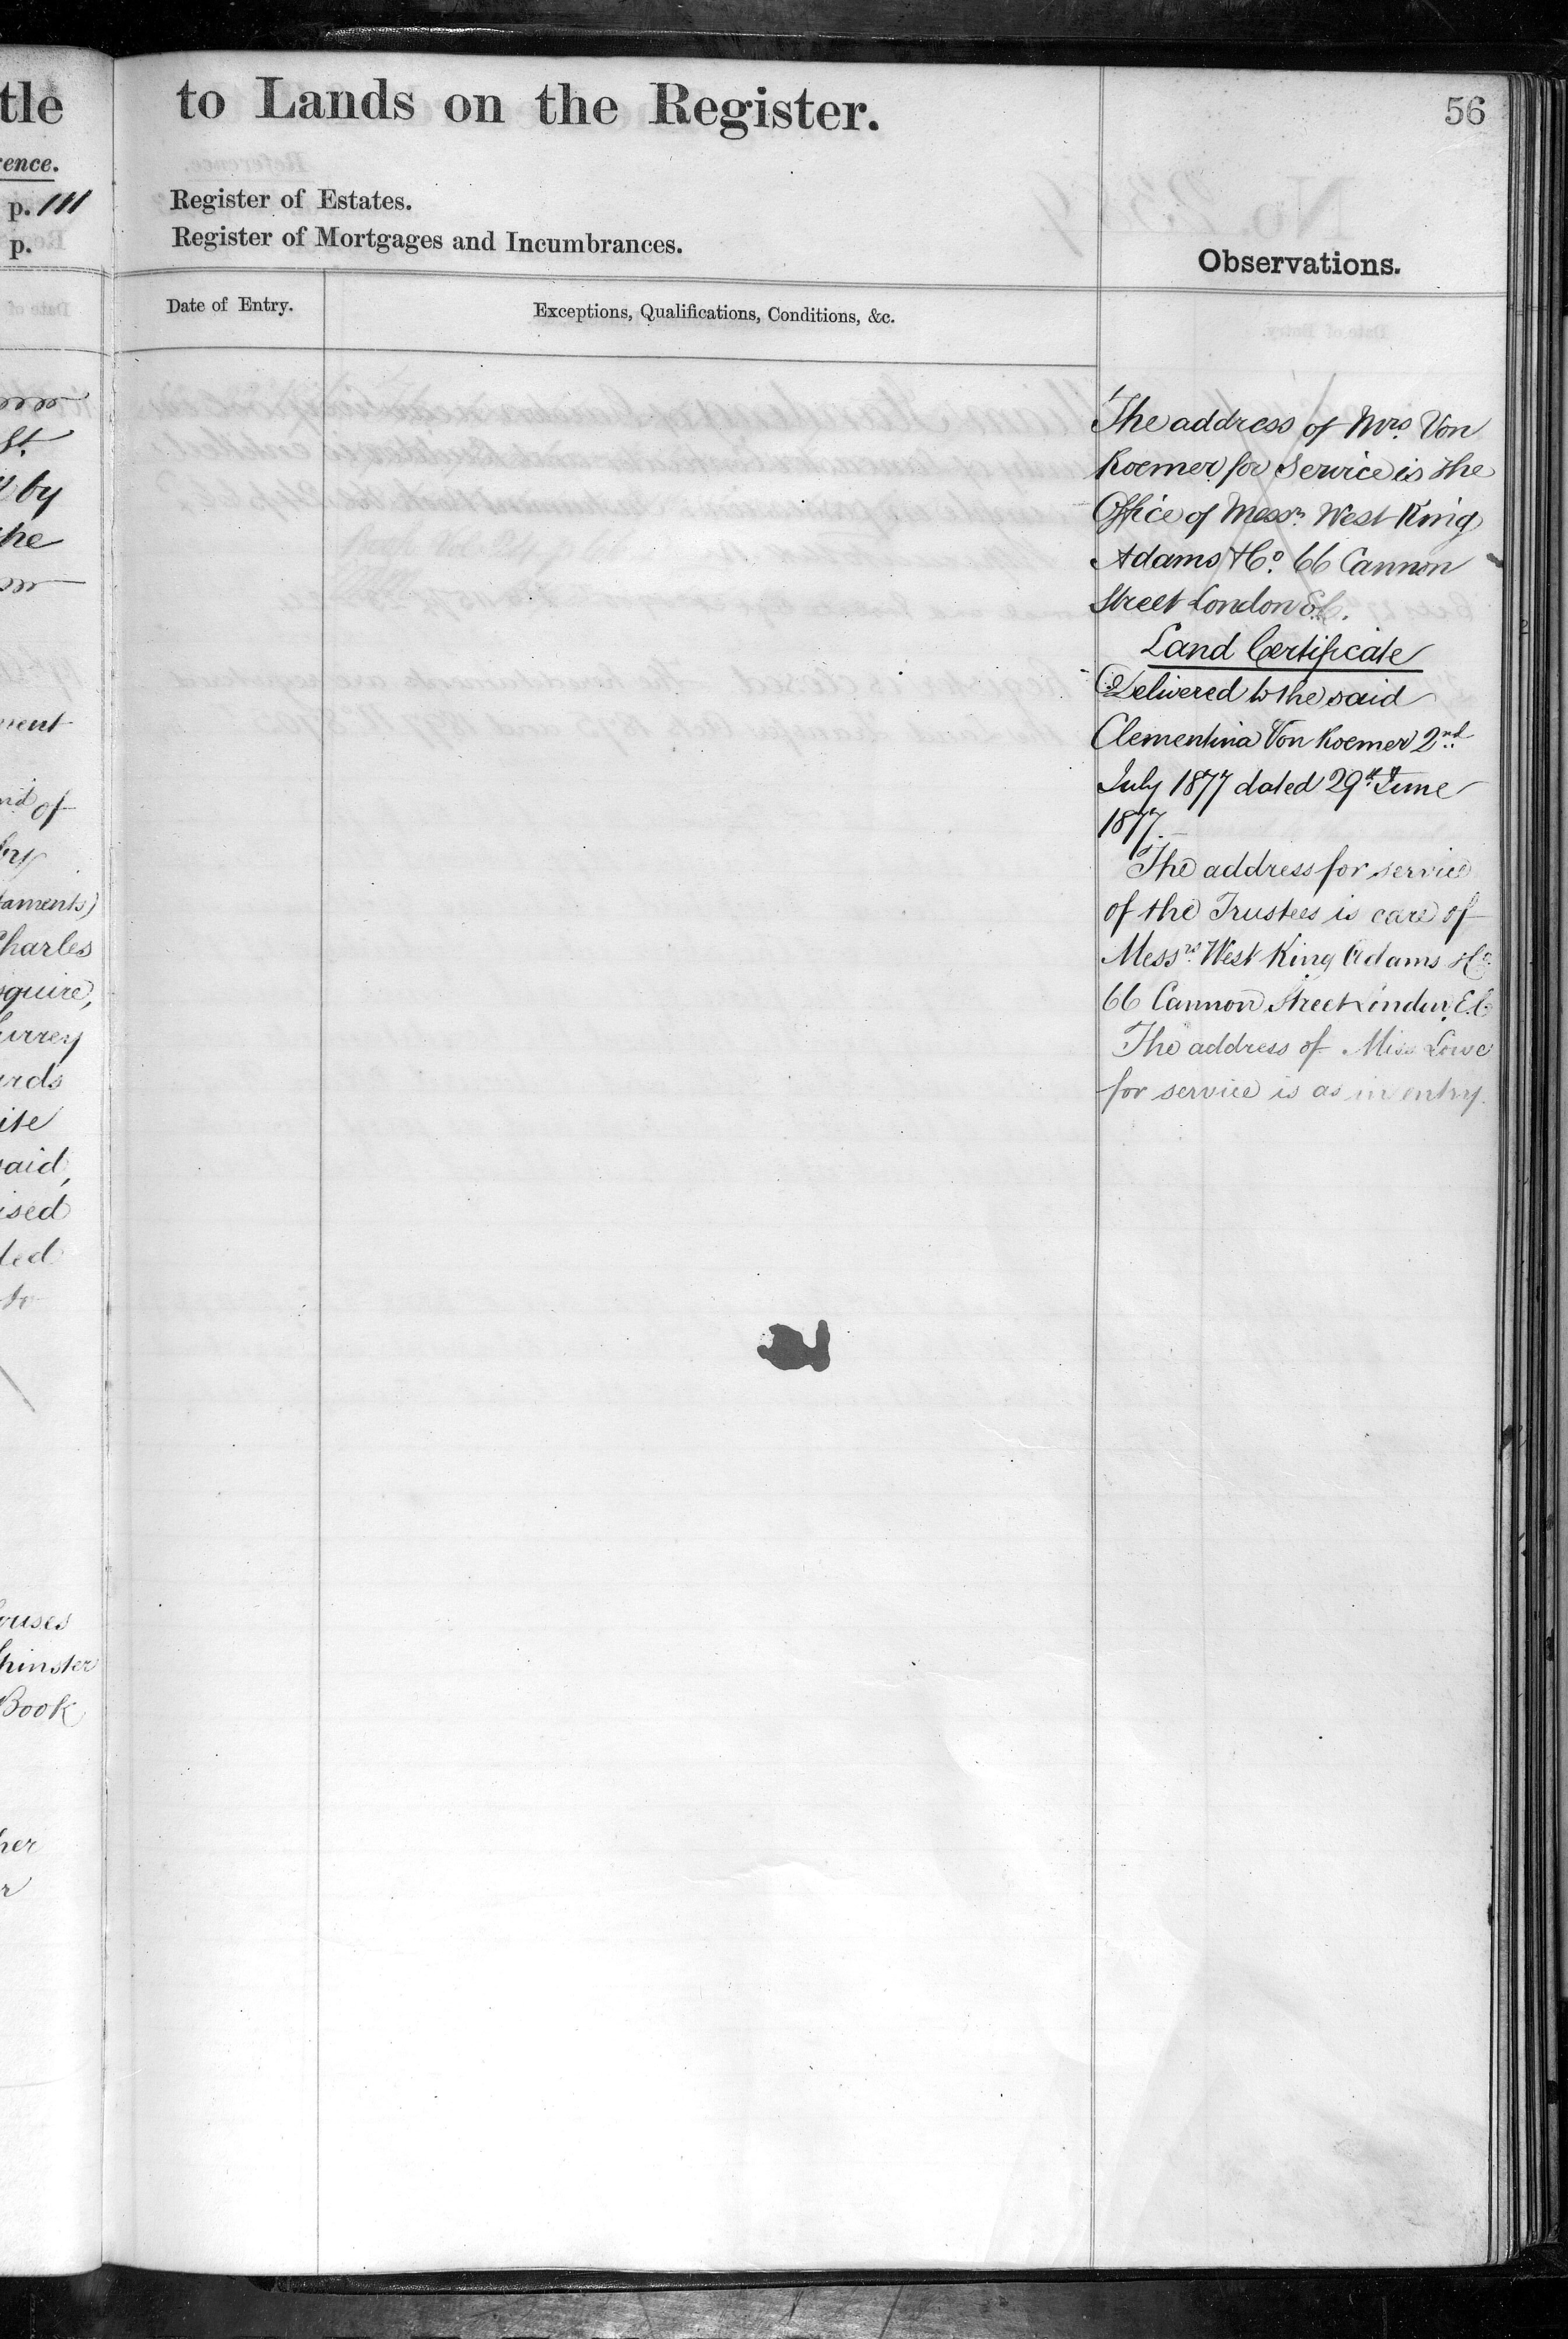 tle
ence.
p. 111
p.
St.
by
the
ment
of
by
taments)
Charles
squire,
Surrey
ards
ite
said,
ised
ded
to
ouses
Book
her
r
to Lands on the Register.
56
Register of Estates.
Register of Mortgages and Incumbrances.
Observations.
Date of Entry.
Exceptions, Qualifications, Conditions, &c.
The address of Mrs. Von
Roemer for Service is the
Office of Messrs. West King
Adams & Co. 66 Cannon
Street London E.C.
Land Certificate
Delivered to the said
Clementina Von Roemer 2nd
July 1877 dated 29th June
1877.
The address for service
of the Trustees is care of
Messrs. West King Adams & Co.
66 Cannon Street London E.C.
The address of Miss Lowe
for service is as in entry.